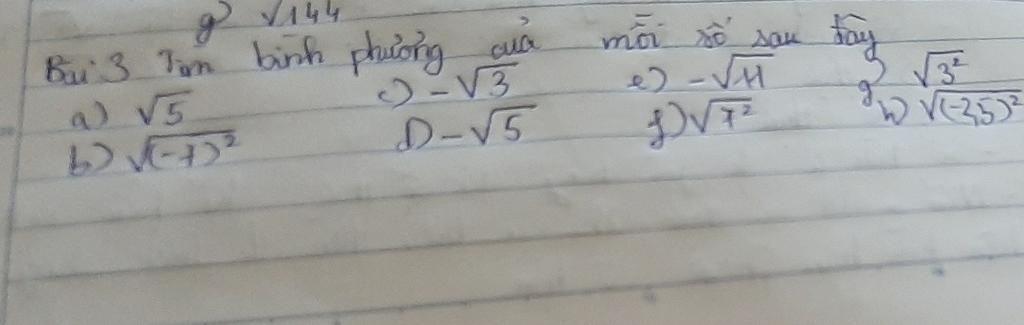 g) √144
Bài 3 Tìm bình phương của mỗi số sau đây
a) √5 c) -√3 e) -√11 g) √3²
b) √(-7)² d) -√5 f) √7² h) √(-2,5)²